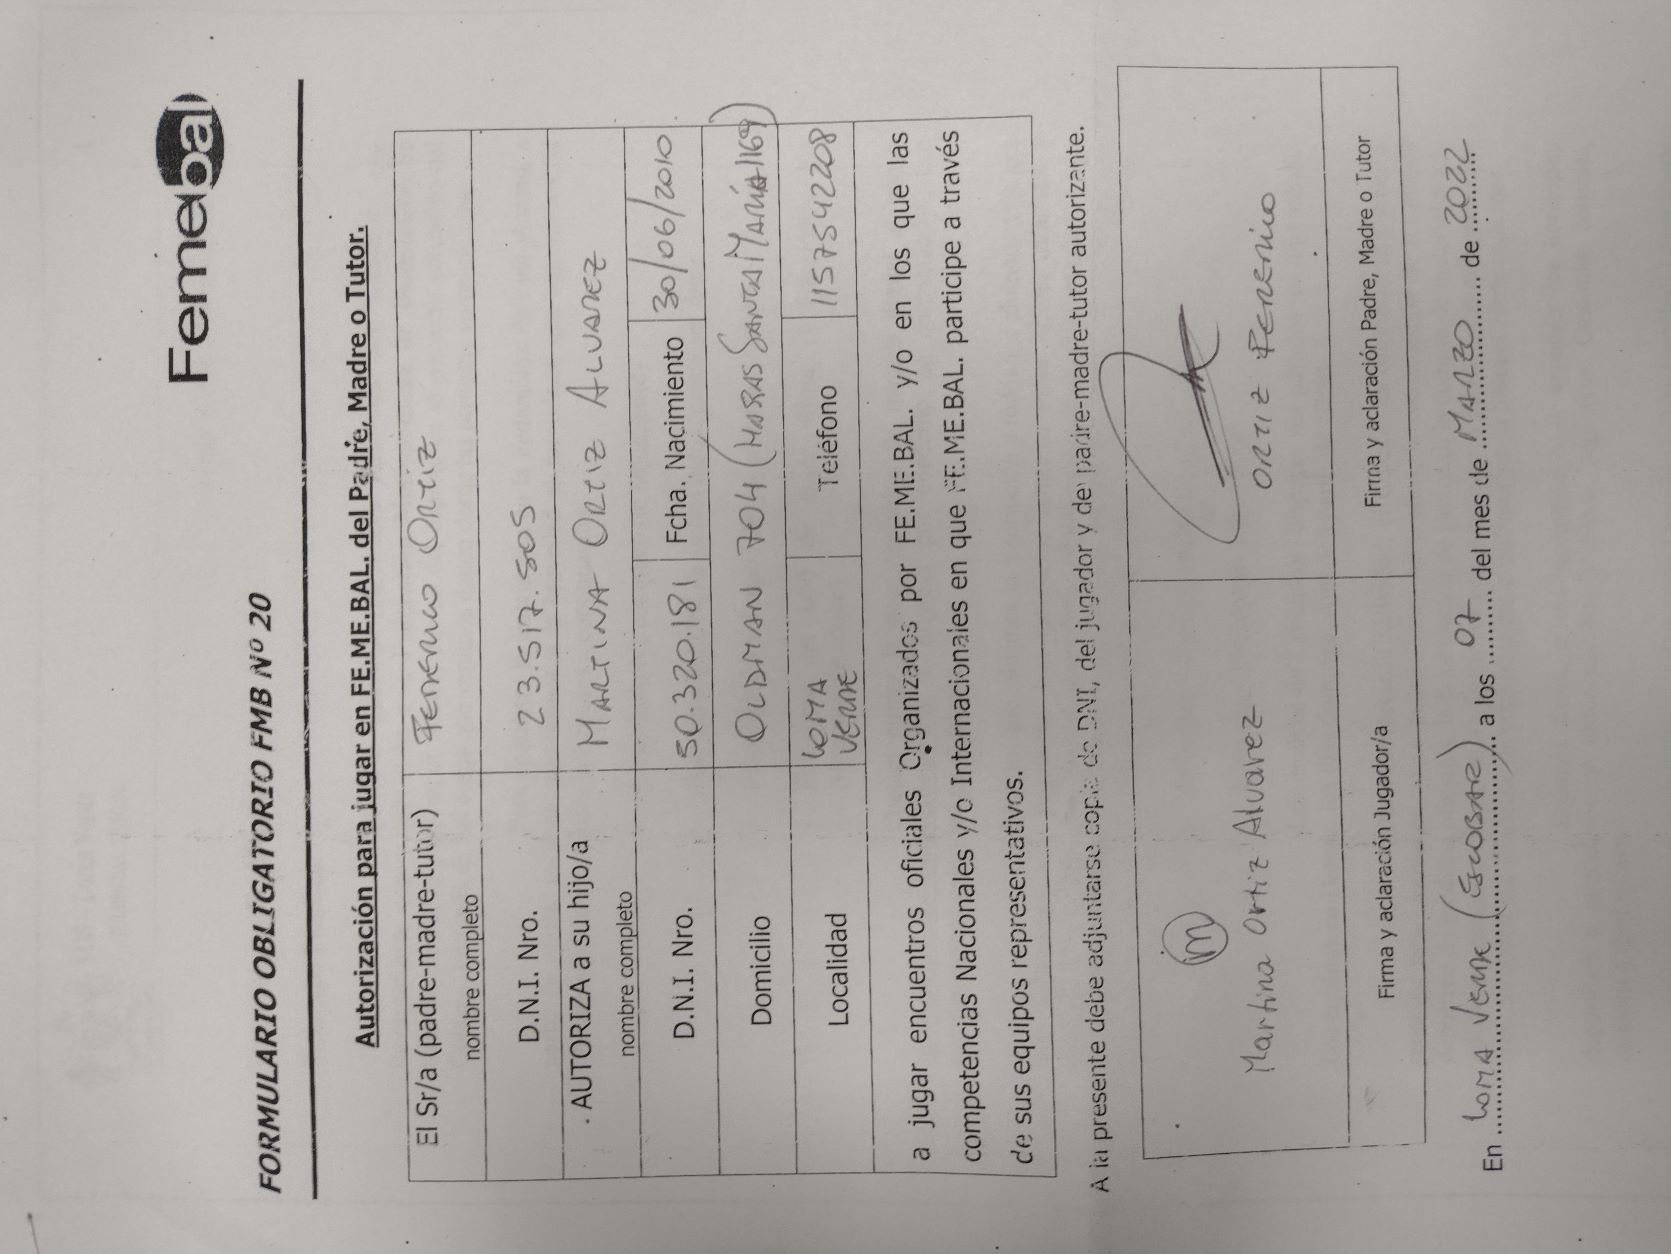 Femebal
FORMULARIO OBLIGATORIO FMB Nº 20
Autorización para jugar en FE.ME.BAL. del Padre, Madre o Tutor.
El Sr/a (padre-madre-tutor) Federico Ortiz
nombre completo
D.N.I. Nro. 23.517.505
AUTORIZA a su hijo/a MARTINA ORTIZ ALVAREZ
nombre completo
D.N.I. Nro. 50.320.181 Fcha. Nacimiento 30/06/2010
Domicilio OLDMAN 704 (HARAS SANTA MARÍA 1169)
Localidad LOMA VERDE Teléfono 1157542208
a jugar encuentros oficiales Organizados por FE.ME.BAL. y/o en los que las
competencias Nacionales y/o Internacionales en que FE.ME.BAL. participe a través
de sus equipos representativos.
A la presente debe adjuntarse copia de DNI, del jugador y del padre-madre-tutor autorizante.
m
Martina Ortiz Alvarez ORTIZ FEDERICO
Firma y aclaración Jugador/a Firma y aclaración Padre, Madre o Tutor
En LOMA VERDE (ESCOBAR) a los 07 del mes de MARZO de 2022